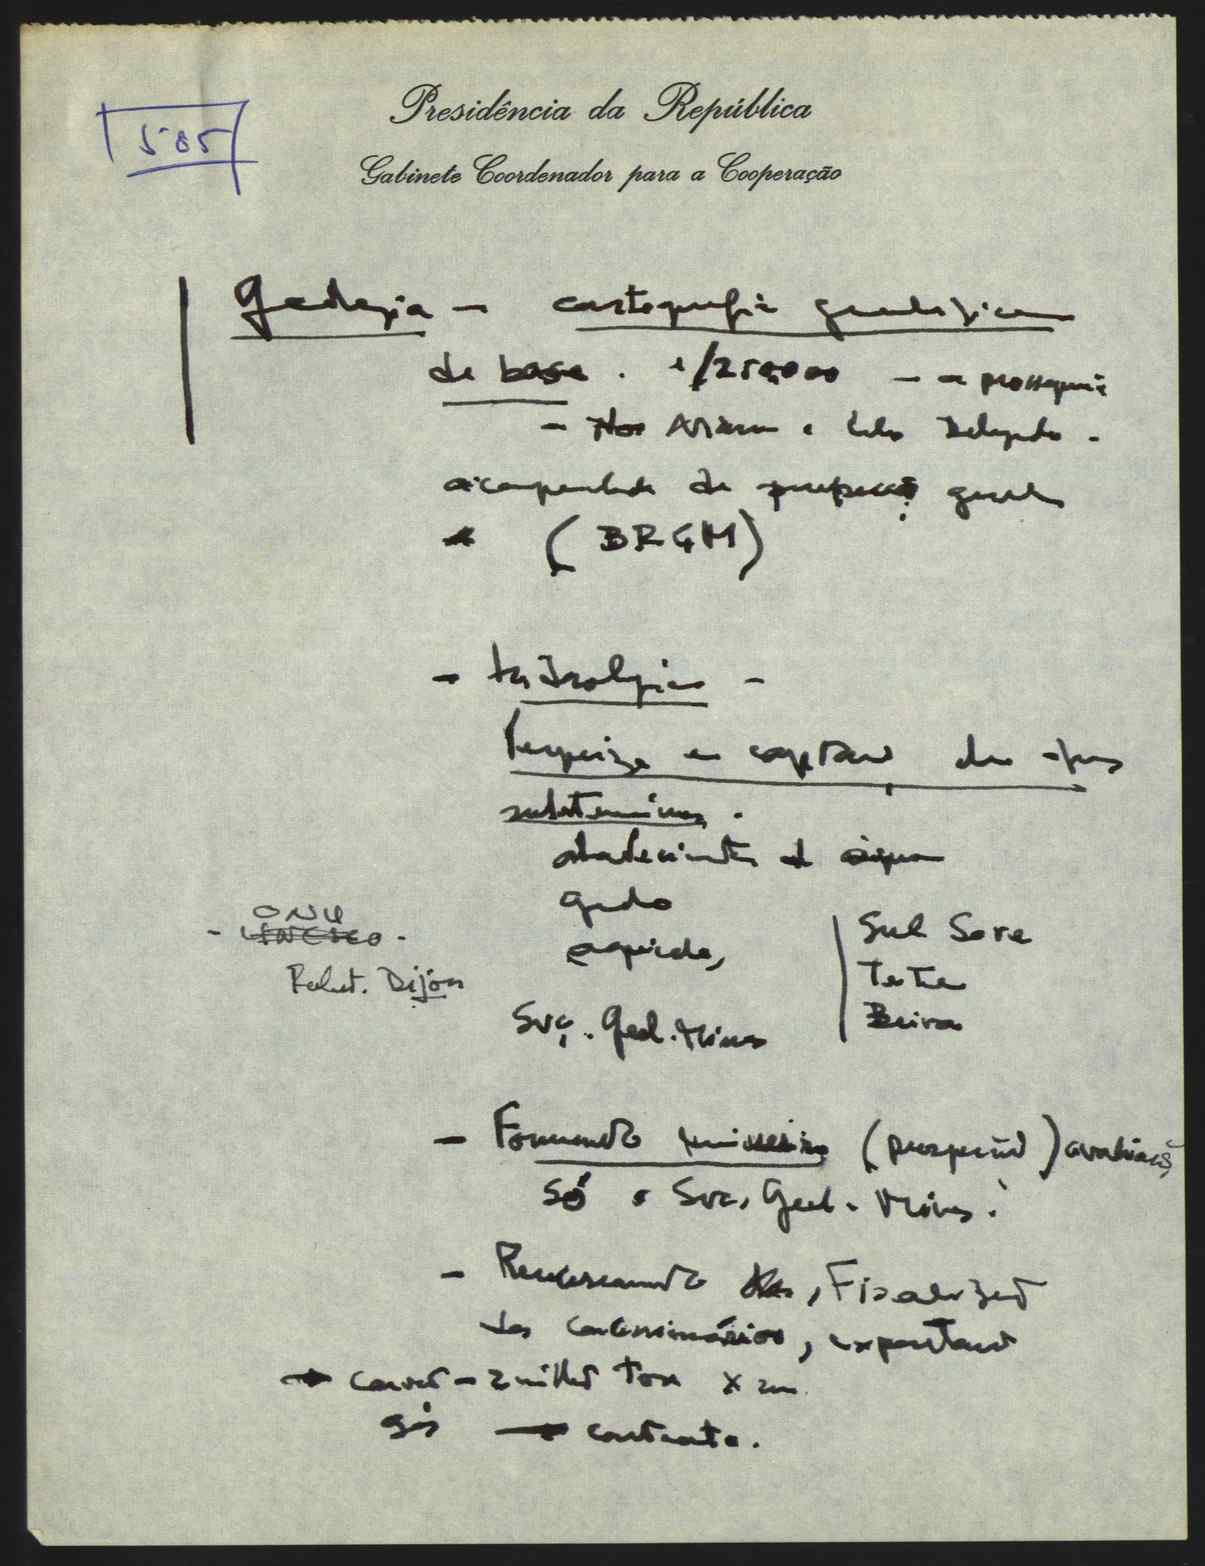 505
Presidência da República
Gabinete Coordenador para a Cooperação
Geologia - cartografia geológica
de base. 1/250,000 - a prosseguir
- e Cabo Delgado -
acompanhada de prospecção geral
(BRGM)
- hidrologia -
Pesquiza e captação de águas
subterrâneas.
abastecimento de água
gado
agrícola,
Sul Save
Tete
Beira
ONU
- UNESCO -
Dijon
Svç. Geol. Minas
- Fomento mineiro (prospecção) avaliação
só o Svç. Geol. Minas.
- , Fiscalização
das concessionárias, exportação
→ carvão - 2 milhões ton x
gás → contrato.